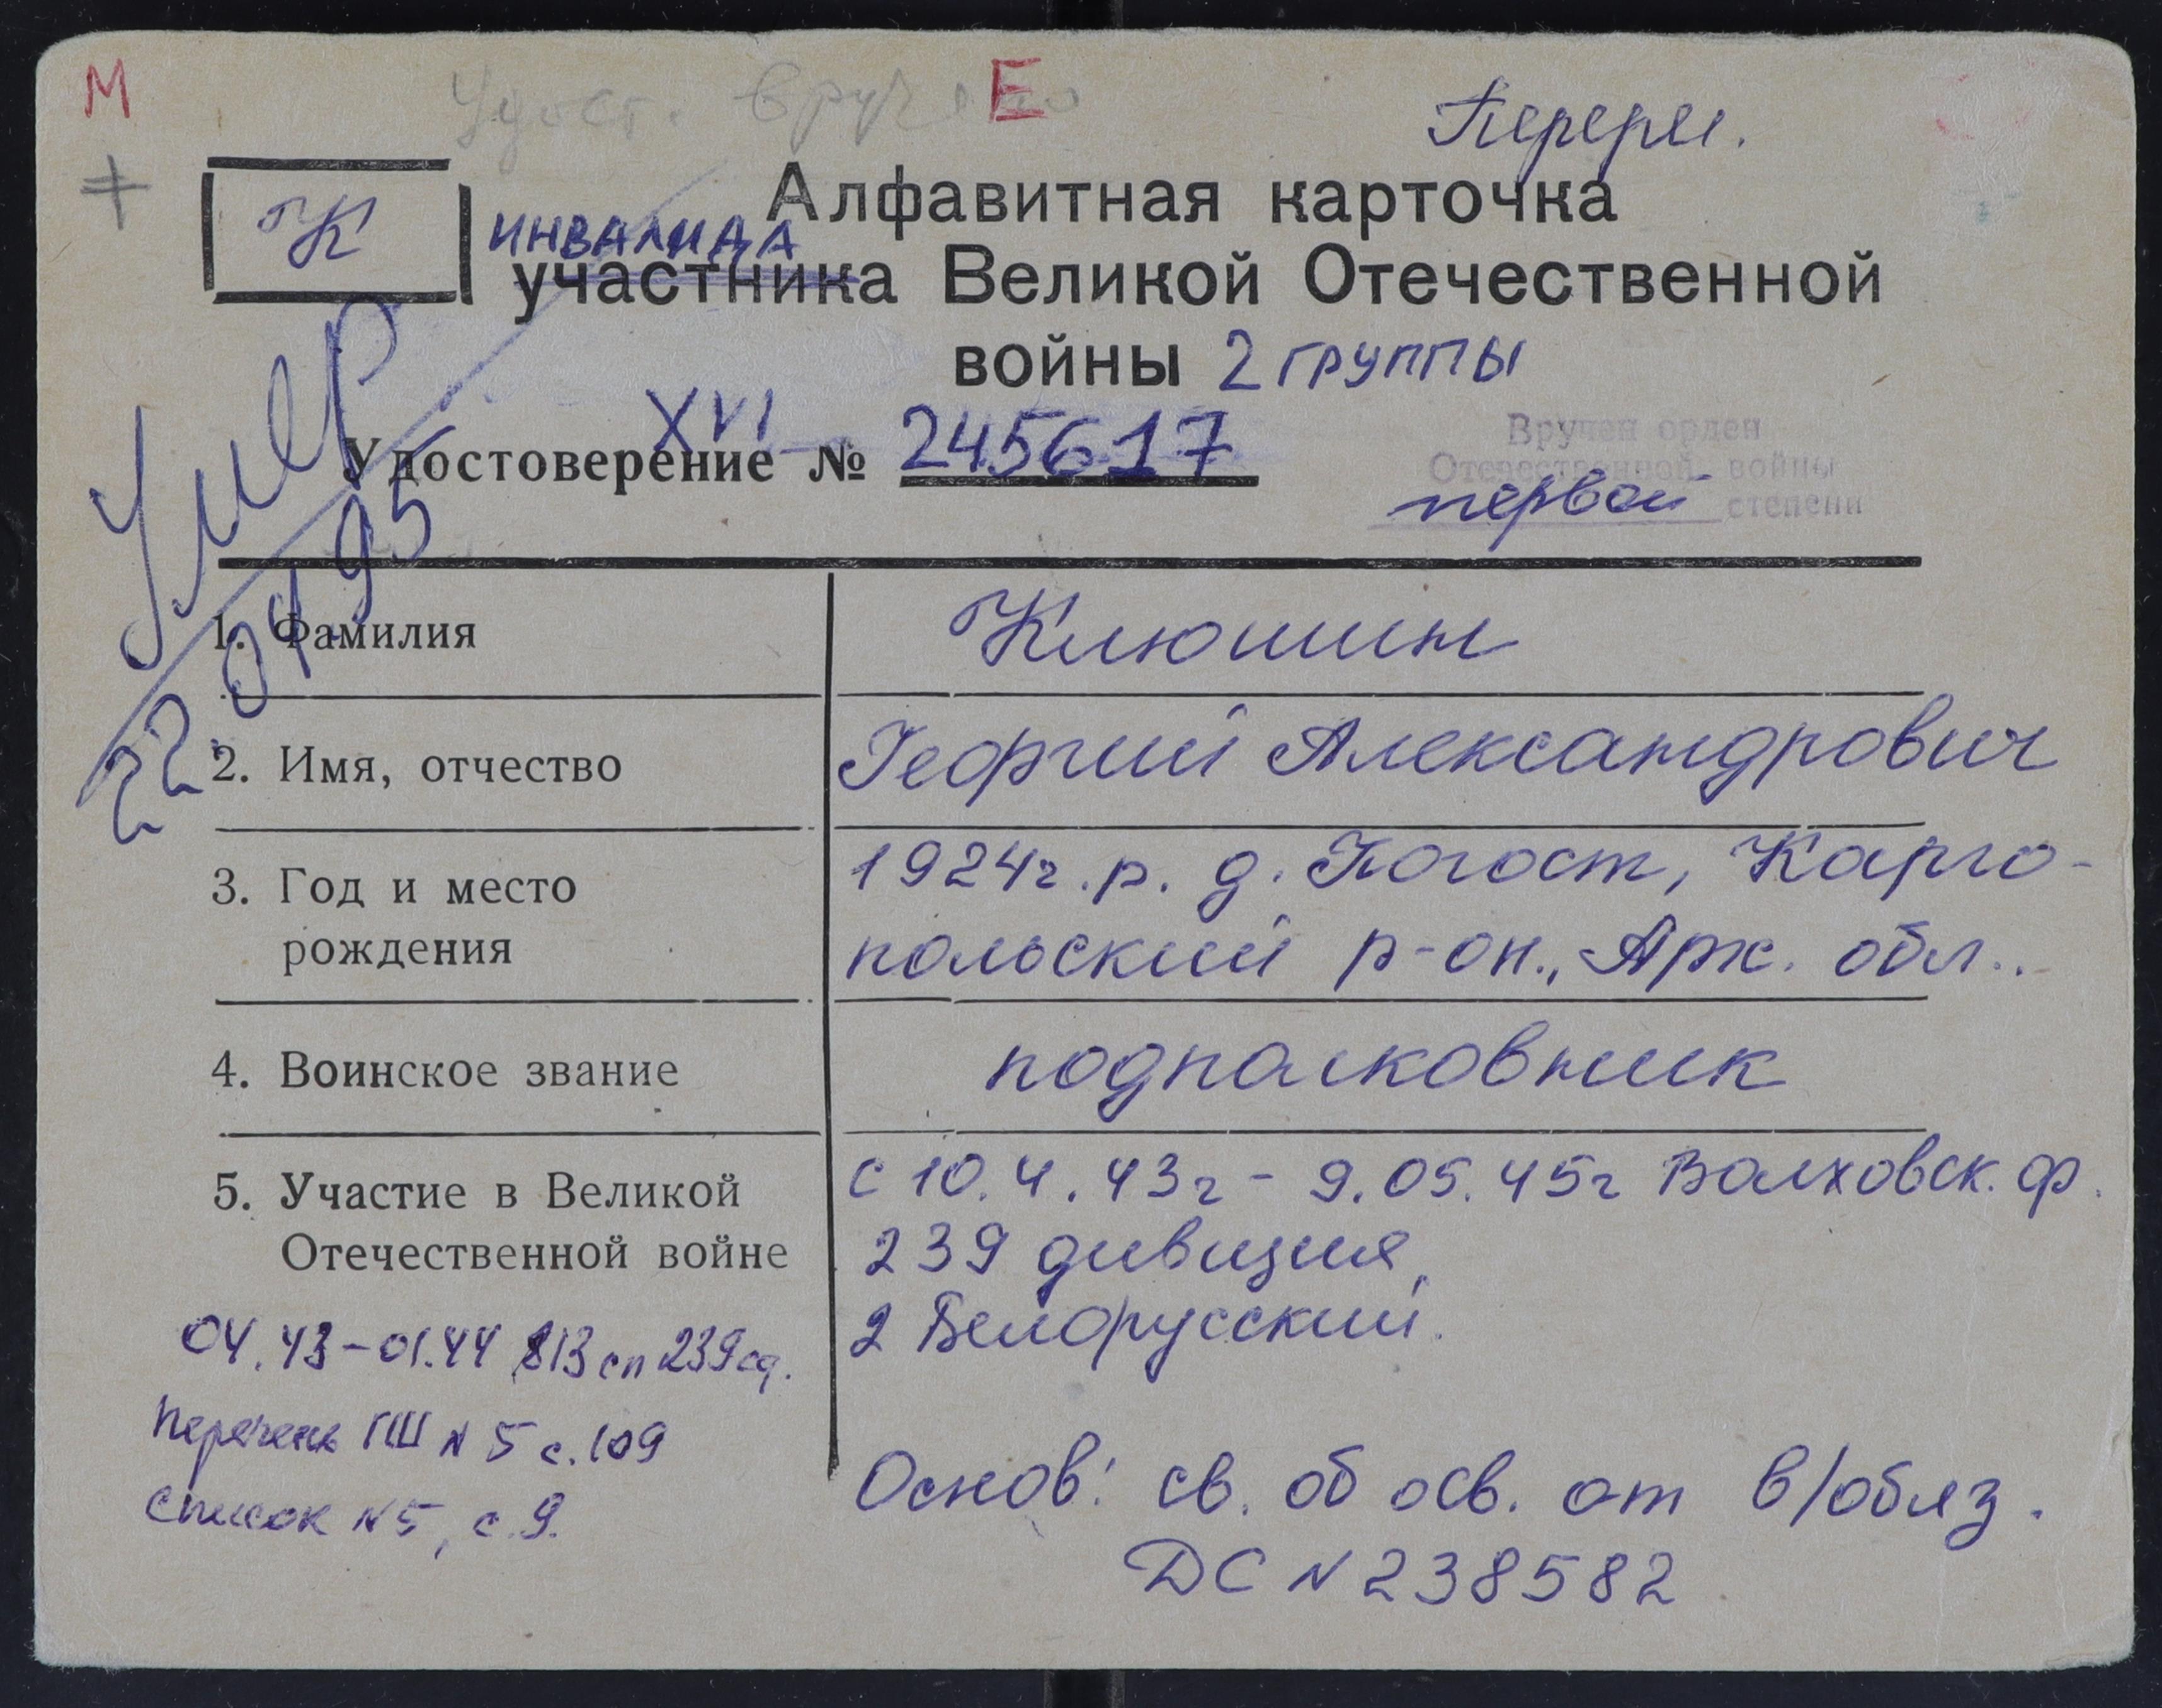 М
Удост. вручено
Е
Перерег.
К
Алфавитная карточка
инвалида
участника Великой Отечественной
войны 2 группы
XVI
Удостоверение № 245617
Вручен орден
Отечественной войны
первой степени
Умер
22.04.95
1. Фамилия
Клюшин
2. Имя, отчество
Георгий Александрович
3. Год и место
рождения
1924г.р. д. Погост, Карго-
польский р-он., Арх. обл..
4. Воинское звание
подполковник
5. Участие в Великой
Отечественной войне
с 10.4.43г - 9.05.45г Волховск. ф.
239 дивизия,
2 Белорусский.
04.43-01.44 813 сп 239 сд.
Перечень ГШ N 5 с.109
Список N5, с.9.
Основ: св. об осв. от в/обяз.
ДС N 238582